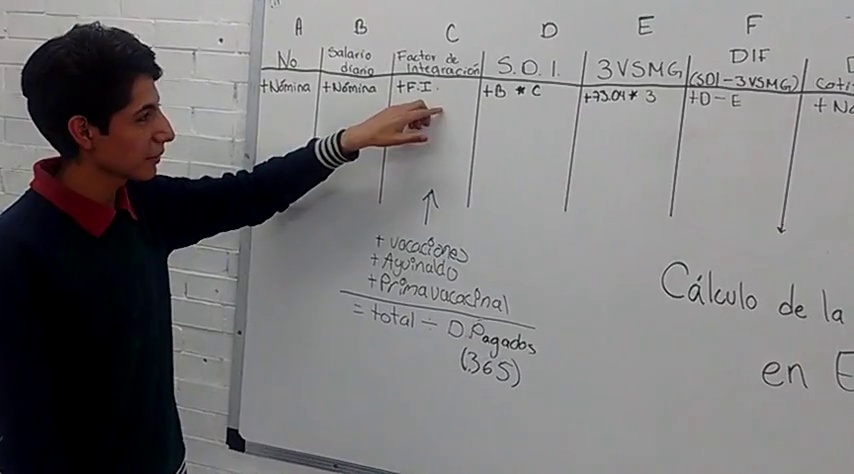 A B C D E F
No
Salario diario
Factor de Integración
S.D.I.
3VSMG
DIF
(SDI-3VSMG)
Coti
+Nómina
+Nómina
+F.I.
+B * C
+73.04* 3
+D-E
+ No
+ vacaciones
+ Aguinaldo
+Prima vacacional
= total - D.Pagados
(365)
Cálculo de la
en E